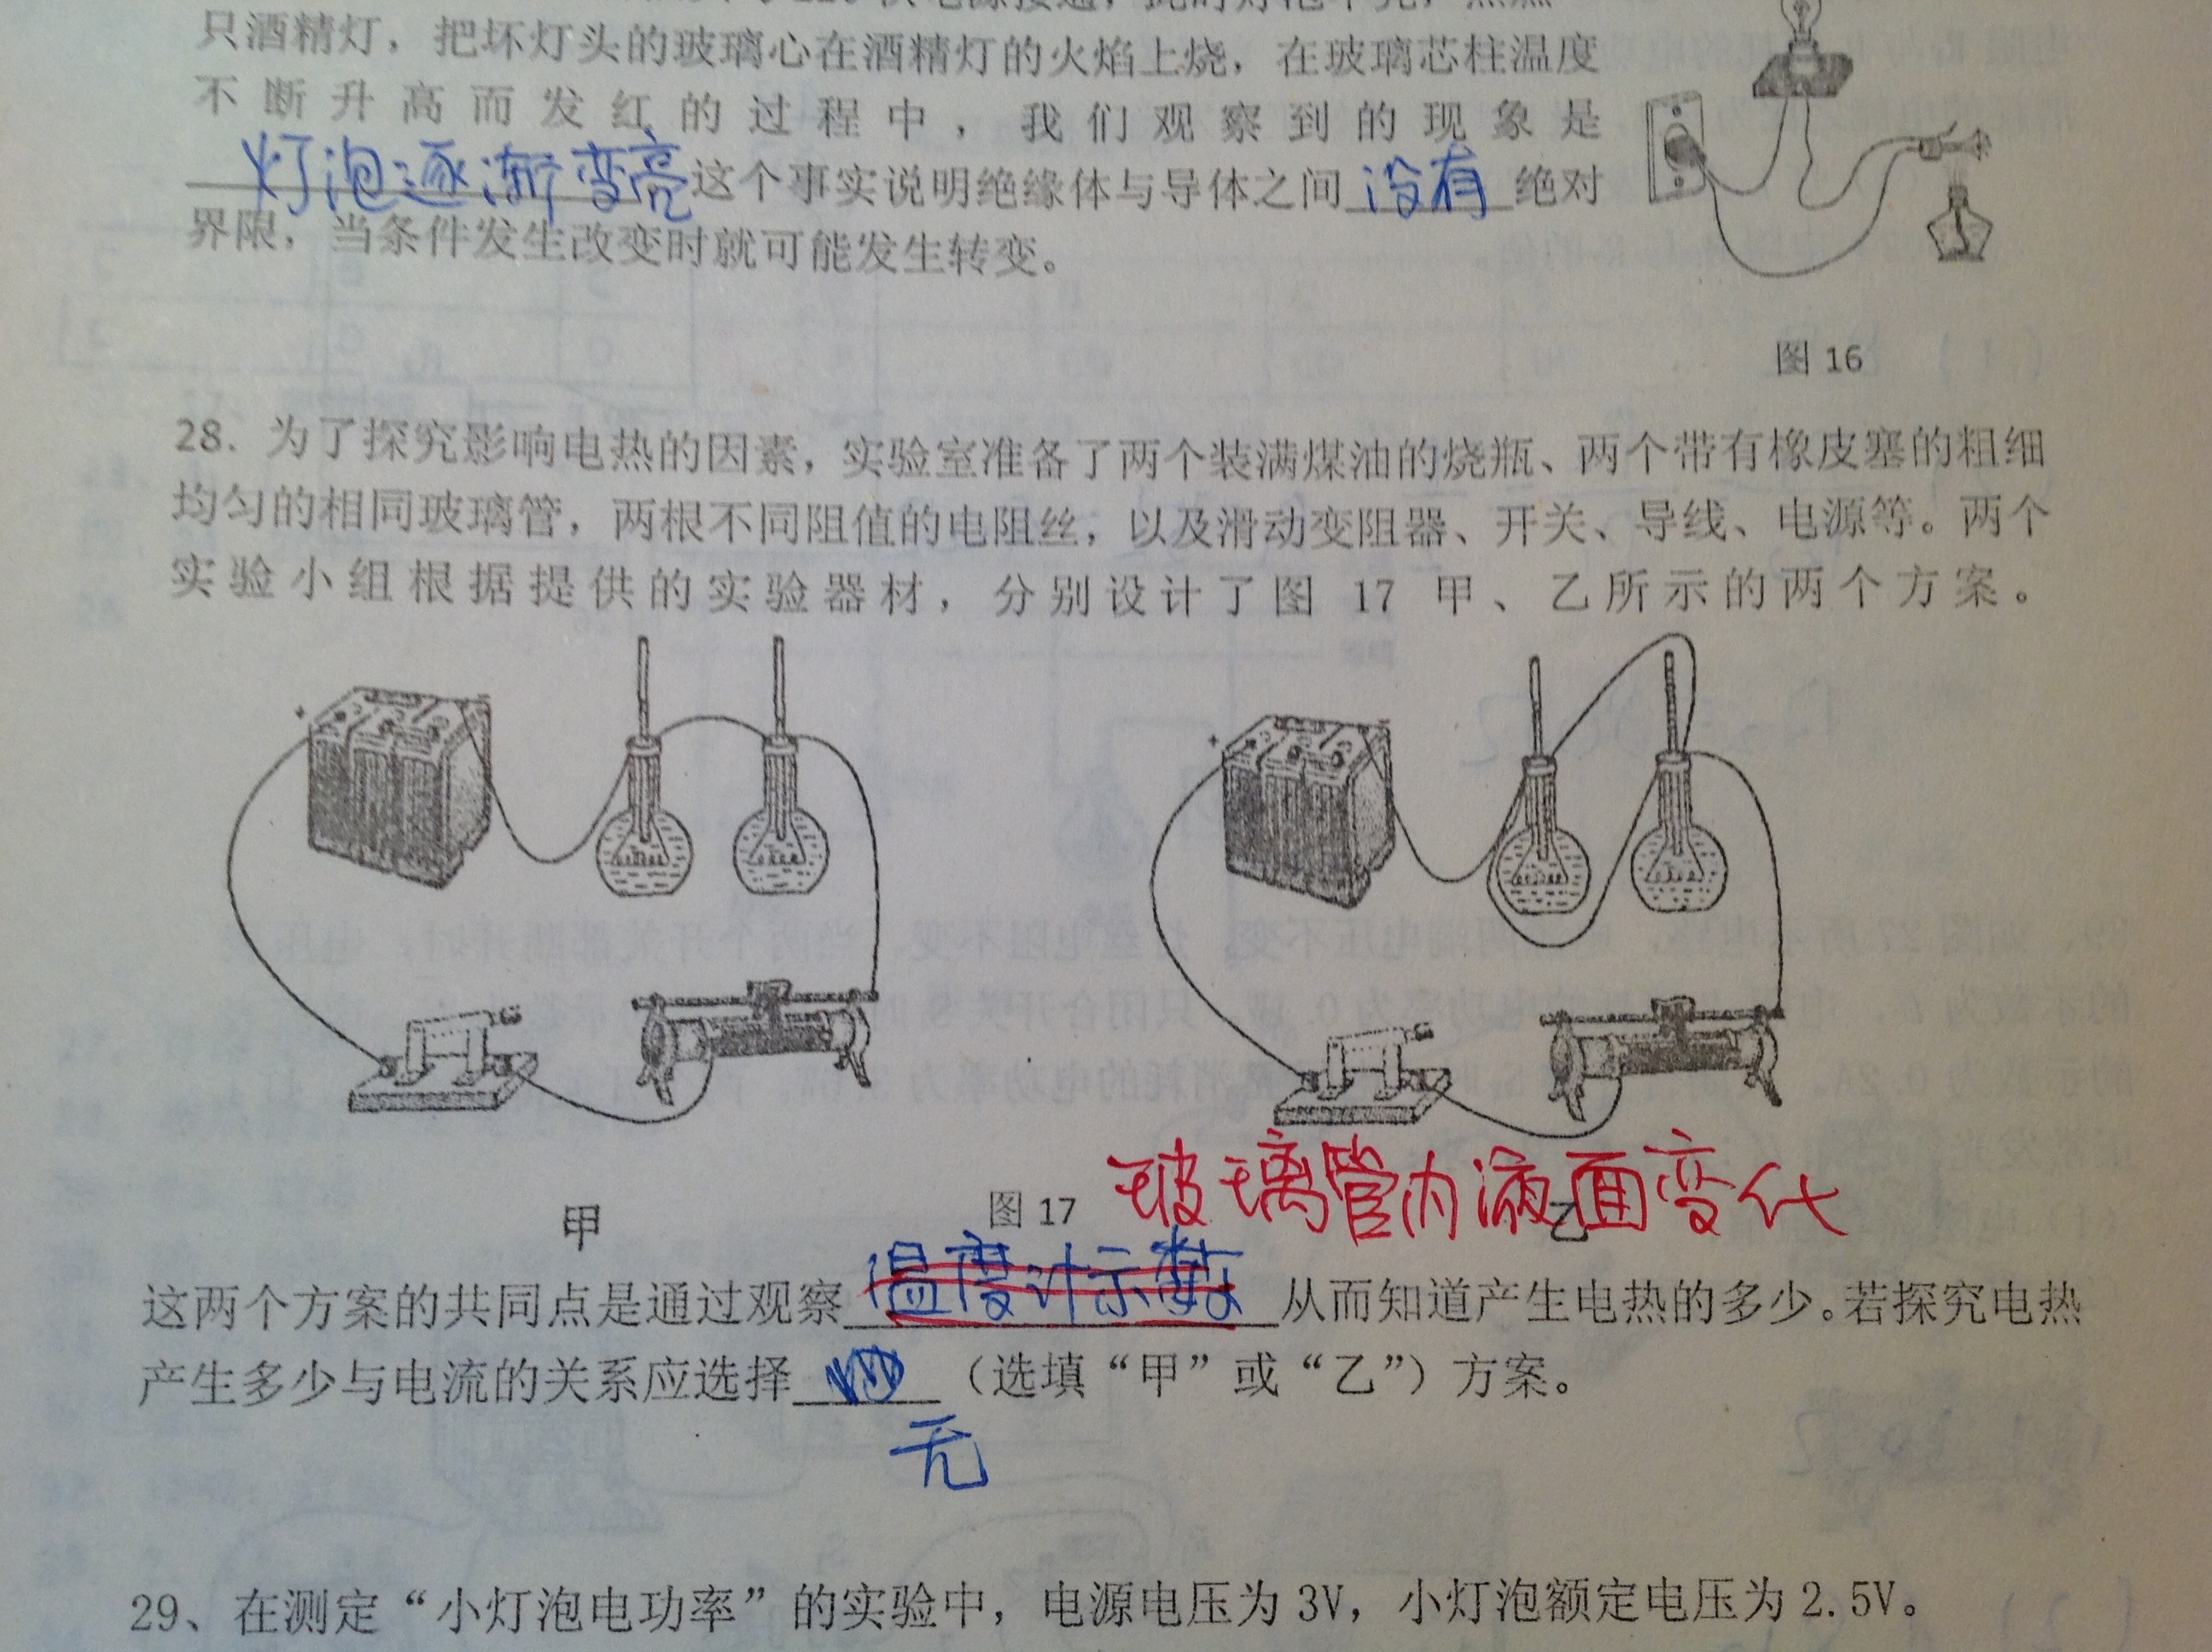 只酒精灯，把坏灯头的玻璃心在酒精灯的火焰上烧，在玻璃芯柱温度
不断升高而发红的过程中，我们观察到的现象是
灯泡逐渐变亮这个事实说明绝缘体与导体之间没有绝对
界限，当条件发生改变时就可能发生转变。
图 16
28. 为了探究影响电热的因素，实验室准备了两个装满煤油的烧瓶、两个带有橡皮塞的粗细
均匀的相同玻璃管，两根不同阻值的电阻丝，以及滑动变阻器、开关、导线、电源等。两个
实验小组根据提供的实验器材，分别设计了图 17 甲、乙所示的两个方案。
玻璃管内液面变化
甲 图 17 乙
这两个方案的共同点是通过观察温度计示数从而知道产生电热的多少。若探究电热
产生多少与电流的关系应选择（选填“甲”或“乙”）方案。
无
29、在测定“小灯泡电功率”的实验中，电源电压为 3V，小灯泡额定电压为 2.5V。